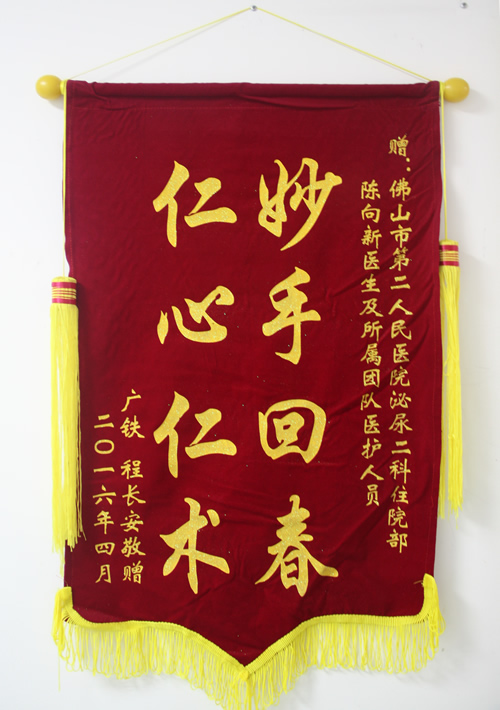 赠：佛山市第二人民医院泌尿二科住院部
陈向新医生及所属团队医护人员
妙手回春
仁心仁术
广铁 程长安敬赠
二〇一六年四月